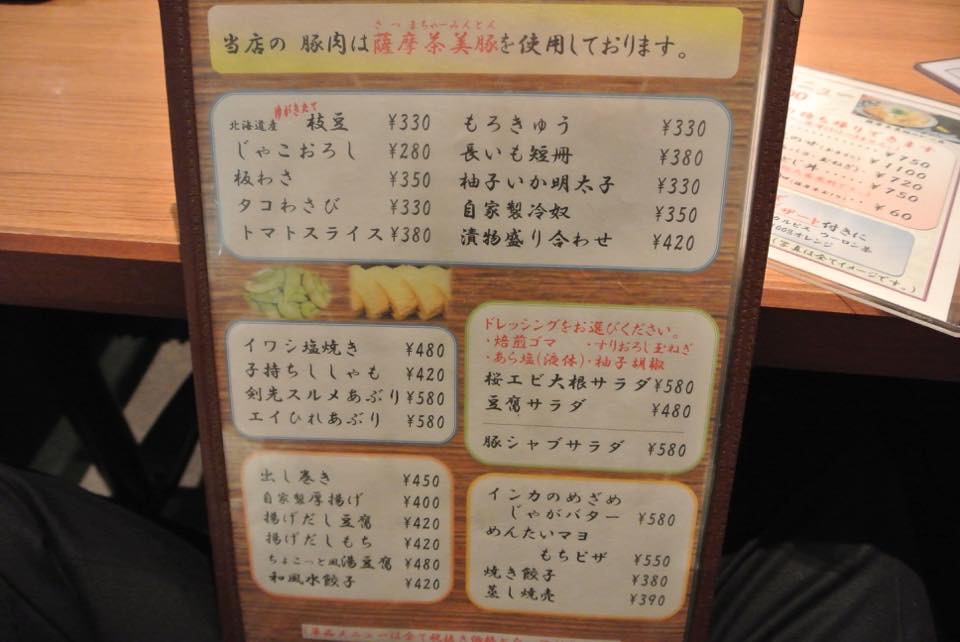 さつまちゃーみんとん
当店の 豚肉は薩摩茶美豚を使用しております。
ゆがきたて
北海道産 枝豆 ¥330
じゃこおろし ¥280
板わさ ¥350
タコわさび ¥330
トマトスライス ¥380
もろきゅう ¥330
長いも短冊 ¥380
柚子いか明太子 ¥330
自家製冷奴 ¥350
漬物盛り合わせ ¥420
イワシ塩焼き ¥480
子持ちししゃも ¥420
剣先スルメあぶり ¥580
エイひれあぶり ¥580
ドレッシングをお選びください。
・焙煎ゴマ ・すりおろし玉ねぎ
・あら塩(液体) ・柚子胡椒
桜エビ大根サラダ ¥580
豆腐サラダ ¥480
豚シャブサラダ ¥580
出し巻き ¥450
自家製厚揚げ ¥400
揚げだし豆腐 ¥420
揚げだしもち ¥420
ちょこっと風湯豆腐 ¥480
和風水餃子 ¥420
インカのめざめ
じゃがバター ¥580
めんたいマヨ
もちピザ ¥550
焼き餃子 ¥380
蒸し焼売 ¥390
単品メニューは全て税抜き価格
¥750
¥100
¥720
¥750
¥60
付きに
ウーロン茶
100%オレンジ
(写真は全てイメージです。)